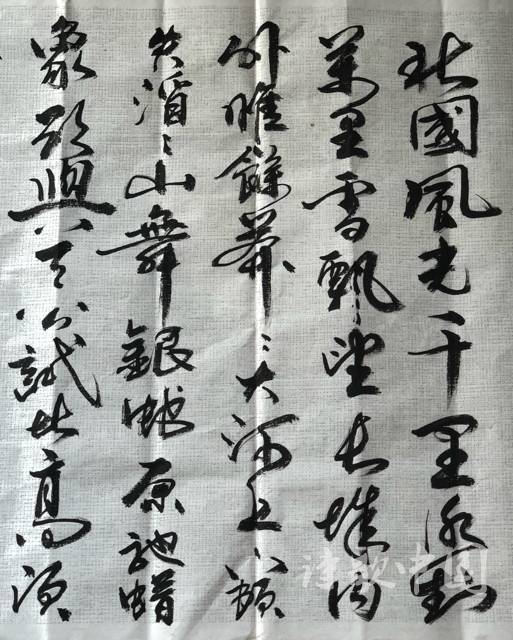 北國風光千里冰封
萬里雪飄望長城内
外唯餘莽〻大河上下頓
失滔〻山舞銀蛇原馳蠟
象欲與天公試比高須
诗歌中国